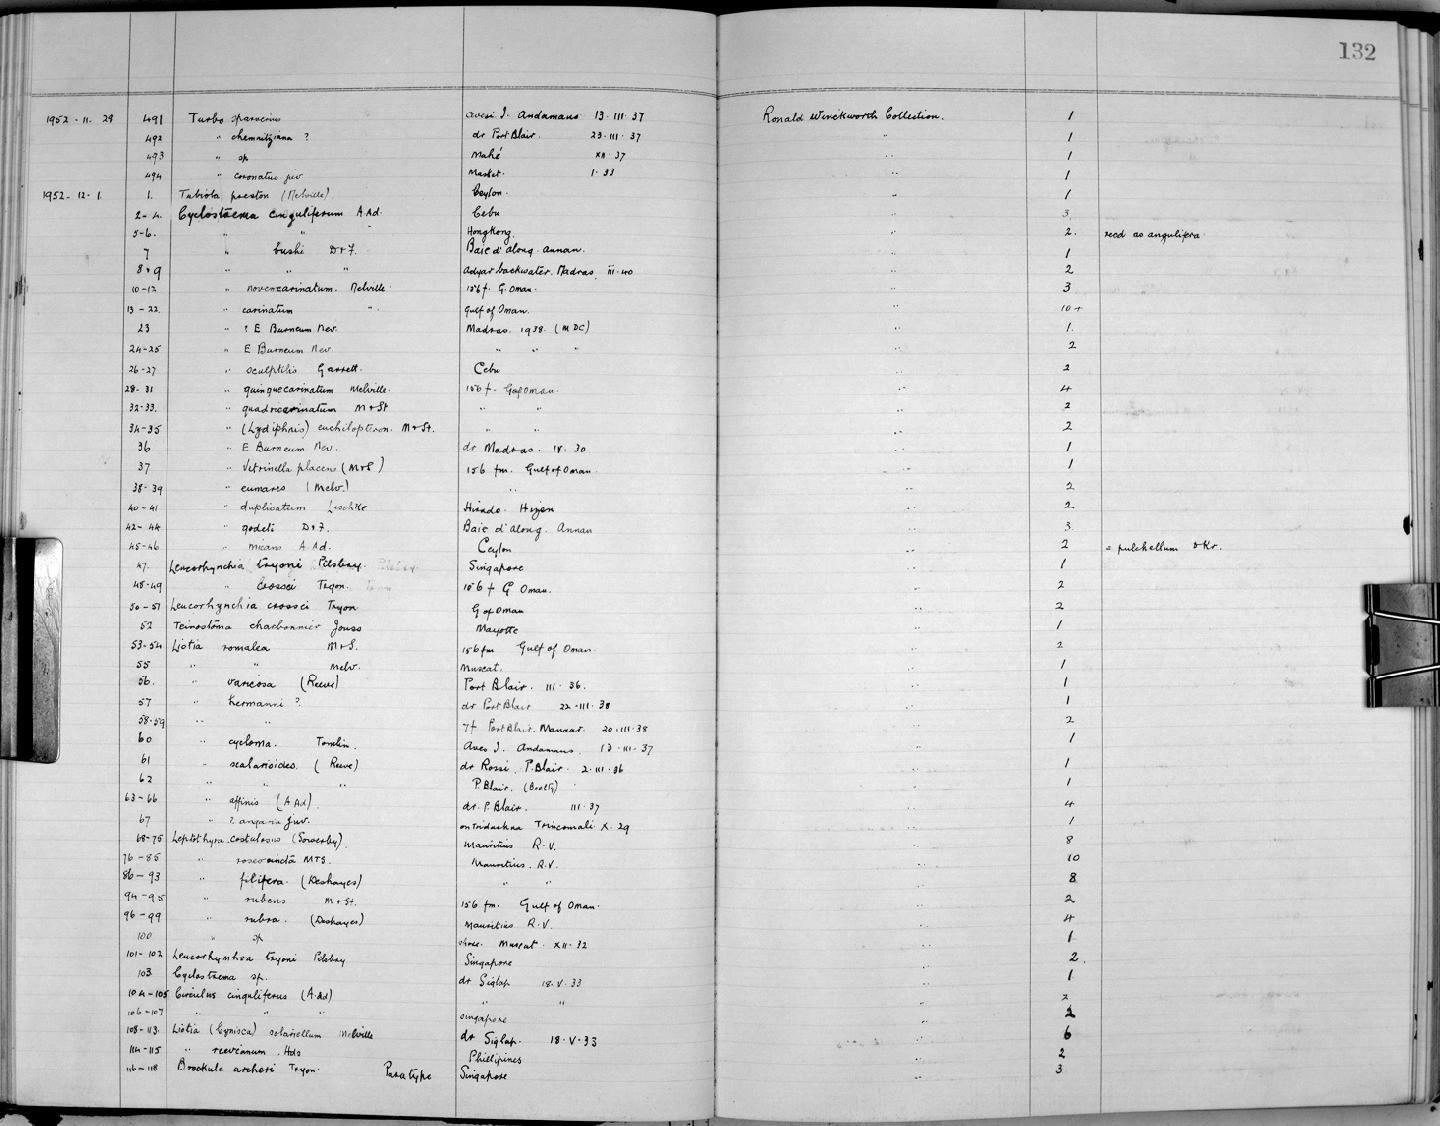 132
1952-11. 29 491 Turbo sparverius Aves I. Andamans 13.III.37 Ronald Winckworth Collection. 1
492 " chemnitziana ? dr Port Blair. 23.III.37 " 1
493 " sp Mahé XII.37 " 1
494 " coronatus juv 1.33 " 1
1952-12.1. 1. (Melville) Ceylon. " 1
2-4. Cyclostrema cinguliferum A.Ad. Cebu " 3.
5-6. " " " Hongkong. " 2. recd as angulifera
7 " bushi D+F. Baie d'along. Annan. " 1
8+9 " " " Adyar backwater. Madras. III.40 " 2
10-12 " novemcarinatum. Melville 156f. G. Oman. " 3
13-22. " carinatum " Gulf of Oman. " 10+
23 " ? E Burneum Nev. Madras. 1938. (MDC) " 1.
24-25 " E Burneum Nev " " " " 2
26-27 " sculptilis Garrett. Cebu " 2
28-31 " quinquecarinatum Melville. 156f. G of Oman. " 4
32-33. " quadricarinatum M+St " " " 2
34-35 " (Lydiphnis) euchilopteron. M+St. " " " 2
36 " E Burneum Nev. dr Madras. IV.30 " 1
37 " Vitrinella placens (M+S) 156 fm. Gulf of Oman. " 1
38-39 " eumares (Melv.) " " 2
40-41 " duplicatum Lischke Hirado Hizen " 2
42-44 " godeti D+F. Baie d'along. Annan " 3
45-46 " micans A.Ad. Ceylon " 2 = pulchellum Dkr.
47. Leucorhynchia tryoni Pilsbry. Singapore " 1
48-49 " crossei Tryon. 156 f G Oman. " 2
50-51 Leucorhynchia crossei Tryon G of Oman " 2
52 Teinostoma charbonnier Jouss Mayotte " 1
53-54 Liotia romalea M+S. 156fm Gulf of Oman. " 2
55 " " Melv. Muscat. " 1
56. " varicosa (Reeve) Port Blair. III.36. " 1
57 " hermanni ? dr Port Blair 22-III.38 " 1
58-59 " " 7f Port Blair. 20.III.38 " 2
60 " cycloma. Tomlin. Aves I. Andamans. 13.III.37 " 1
61 " scalarioides. (Reeve) dr Rossi. P.Blair. 2.III.36 " 1
62 " " P.Blair. (Booley) " 1
63-66 " affinis (A.Ad). dr. P. Blair. III.37 " 4
67 " ? angaria Juv. on Tridachna Trincomali. X.29 " 1
68-75 Leptothyra costulosus (Sowerby). Mauritius R.V. " 8
76-85 " roseocincta MTS. Mauritius. R.V. " 10
86-93 " filifera. (Deshayes) " " " 8
94-95 " rubens M+St. 156 fm. Gulf of Oman. " 2
96-99 " rubra. (Deshayes) Mauritius R.V. " 4
100 " sp shore. Muscat. XII.32 " 1
101-102 Leucorhynchia tryoni Pilsbry Singapore " 2.
103 Cyclostrema sp. dr Siglap 18.V.33 " 1
104-105 Circulus cinguliferus (A.Ad) " " " 2
106-107 " " " Singapore " 2
108-113. Liotia (Cynisca) solariellum Melville dr Siglap. 18.V.33 " 6
114-115 " reevianum. Hds Phillipines " 2
116-118 Brookula archeri Tryon. Paratype Singapore " 3